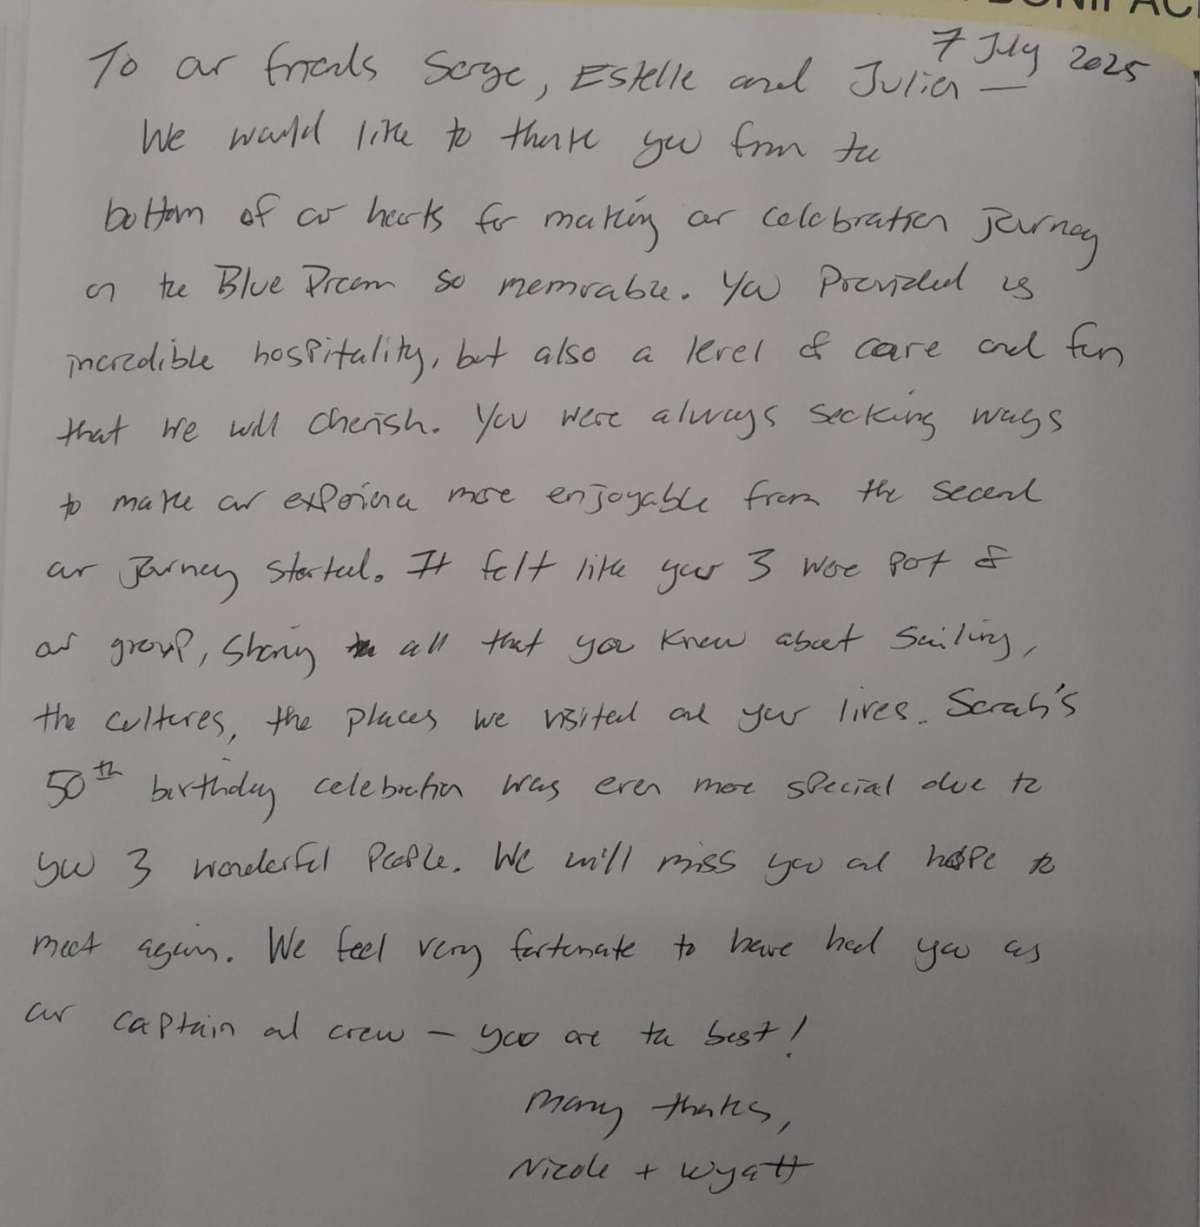 BONIFAC
7 July 2025
To our friends Serge, Estelle and Julien —
We would like to thank you from the
bottom of our hearts for making our celebration journey
on the Blue Dream so memorable. You provided us
incredible hospitality, but also a level of care and fun
that we will cherish. You were always seeking ways
to make our experience more enjoyable from the second
our journey started. It felt like your 3 were part of
our group, sharing all that you knew about sailing,
the cultures, the places we visited and your lives. Sarah's
50th birthday celebration was even more special due to
you 3 wonderful people. We will miss you and hope to
meet again. We feel very fortunate to have had you as
our captain and crew — you are the best!
Many thanks,
Nicole + Wyatt